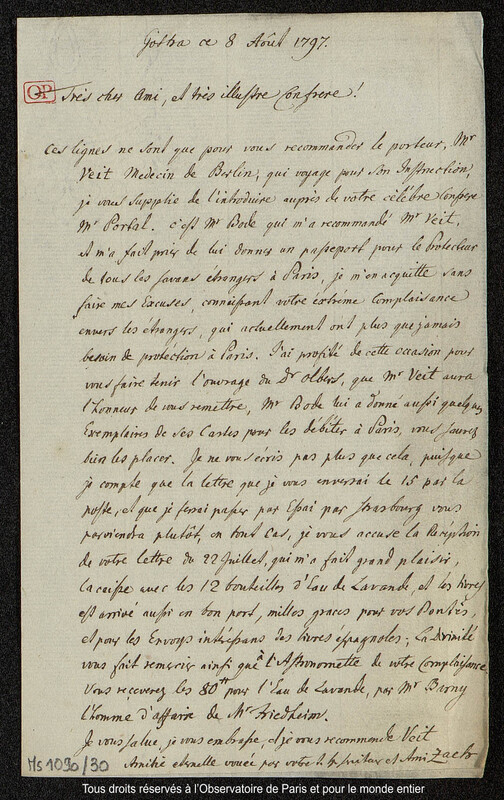 Gotha ce 8 Août 1797.
OP
Très cher Ami, et très illustre Confrere!
Ces lignes ne sont que pour vous recommander le porteur, Mr
Veit Medecin de Berlin, qui voyage pour son Instruction,
je vous supplie de l'introduire auprès de votre célèbre Confrere
Mr Portal. c'est Mr Bode qui m'a recommandé Mr Veit,
et m'a fait prier de lui donner un passeport pour le Protecteur
de tous les savans étrangers à Paris, je m'en acquitte sans
faire mes Excuses, connaissant votre extrême Complaisance
envers les étrangers, qui actuellement ont plus que jamais
besoin de protéction à Paris. J'ai profité de cette occasion pour
vous faire tenir l'ouvrage du Dr Olbers, que Mr Veit aura
l'honneur de vous remettre, Mr Bode lui a donné aussi quelques
Exemplaires de ses Cartes pour les débiter à Paris, vous saurez
bien les placer. Je ne vous écris pas plus que cela, puisque
je compte que la lettre que je vous enverrai le 15 par la
poste, et que je ferai passer par Essai par Strasbourg vous
parviendra plutôt, en tout cas, je vous accuse la Réception
de votre lettre du 22 Juillet, qui m'a fait grand plaisir,
la caisse avec les 12 bouteilles d'Eau de Lavande, et les livres
est arrivé aussi en bon port, milles graces pour vos Bontés,
et pour les Envoys intéressans des livres espagnoles; La Divinité
vous fait remercier ainsi que l'Astronomette de votre Complaisance
Vous recevrez les 80 tt pour l'Eau de Lavande, par Mr Barny
l'homme d'affaire de Mr Friedheim.
Je vous salue, je vous embrasse, et je vous recommande Veit
Amitié eternelle vouée par votre serviteur et Ami Zach
Ms 1090/30
Tous droits réservés à l'Observatoire de Paris et pour le monde entier